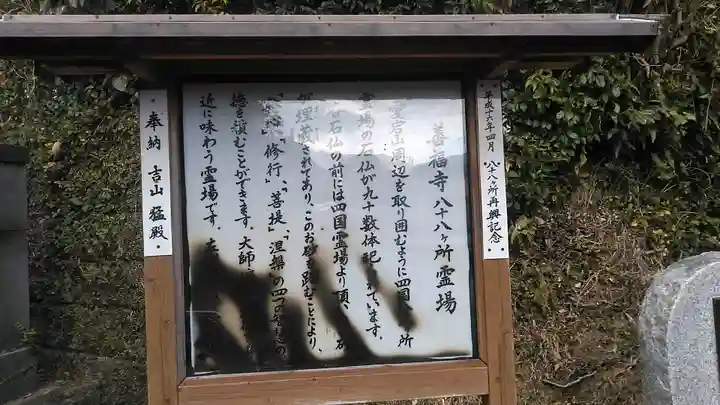 平成十六年四月 八十八ヶ所再興記念
善福寺 八十八ヶ所霊場
愛宕山周辺を取り囲むように四国 所
霊場の石仏が九十数体祀られています。
石仏の前には四国霊場より頂 石
埋蔵されてあり、このお砂を踏むことにより、
心」「修行」「菩提」「涅槃」の四つの の
徳を積むことができます。大師
近に味わう霊場です。
奉納 吉山 猛殿